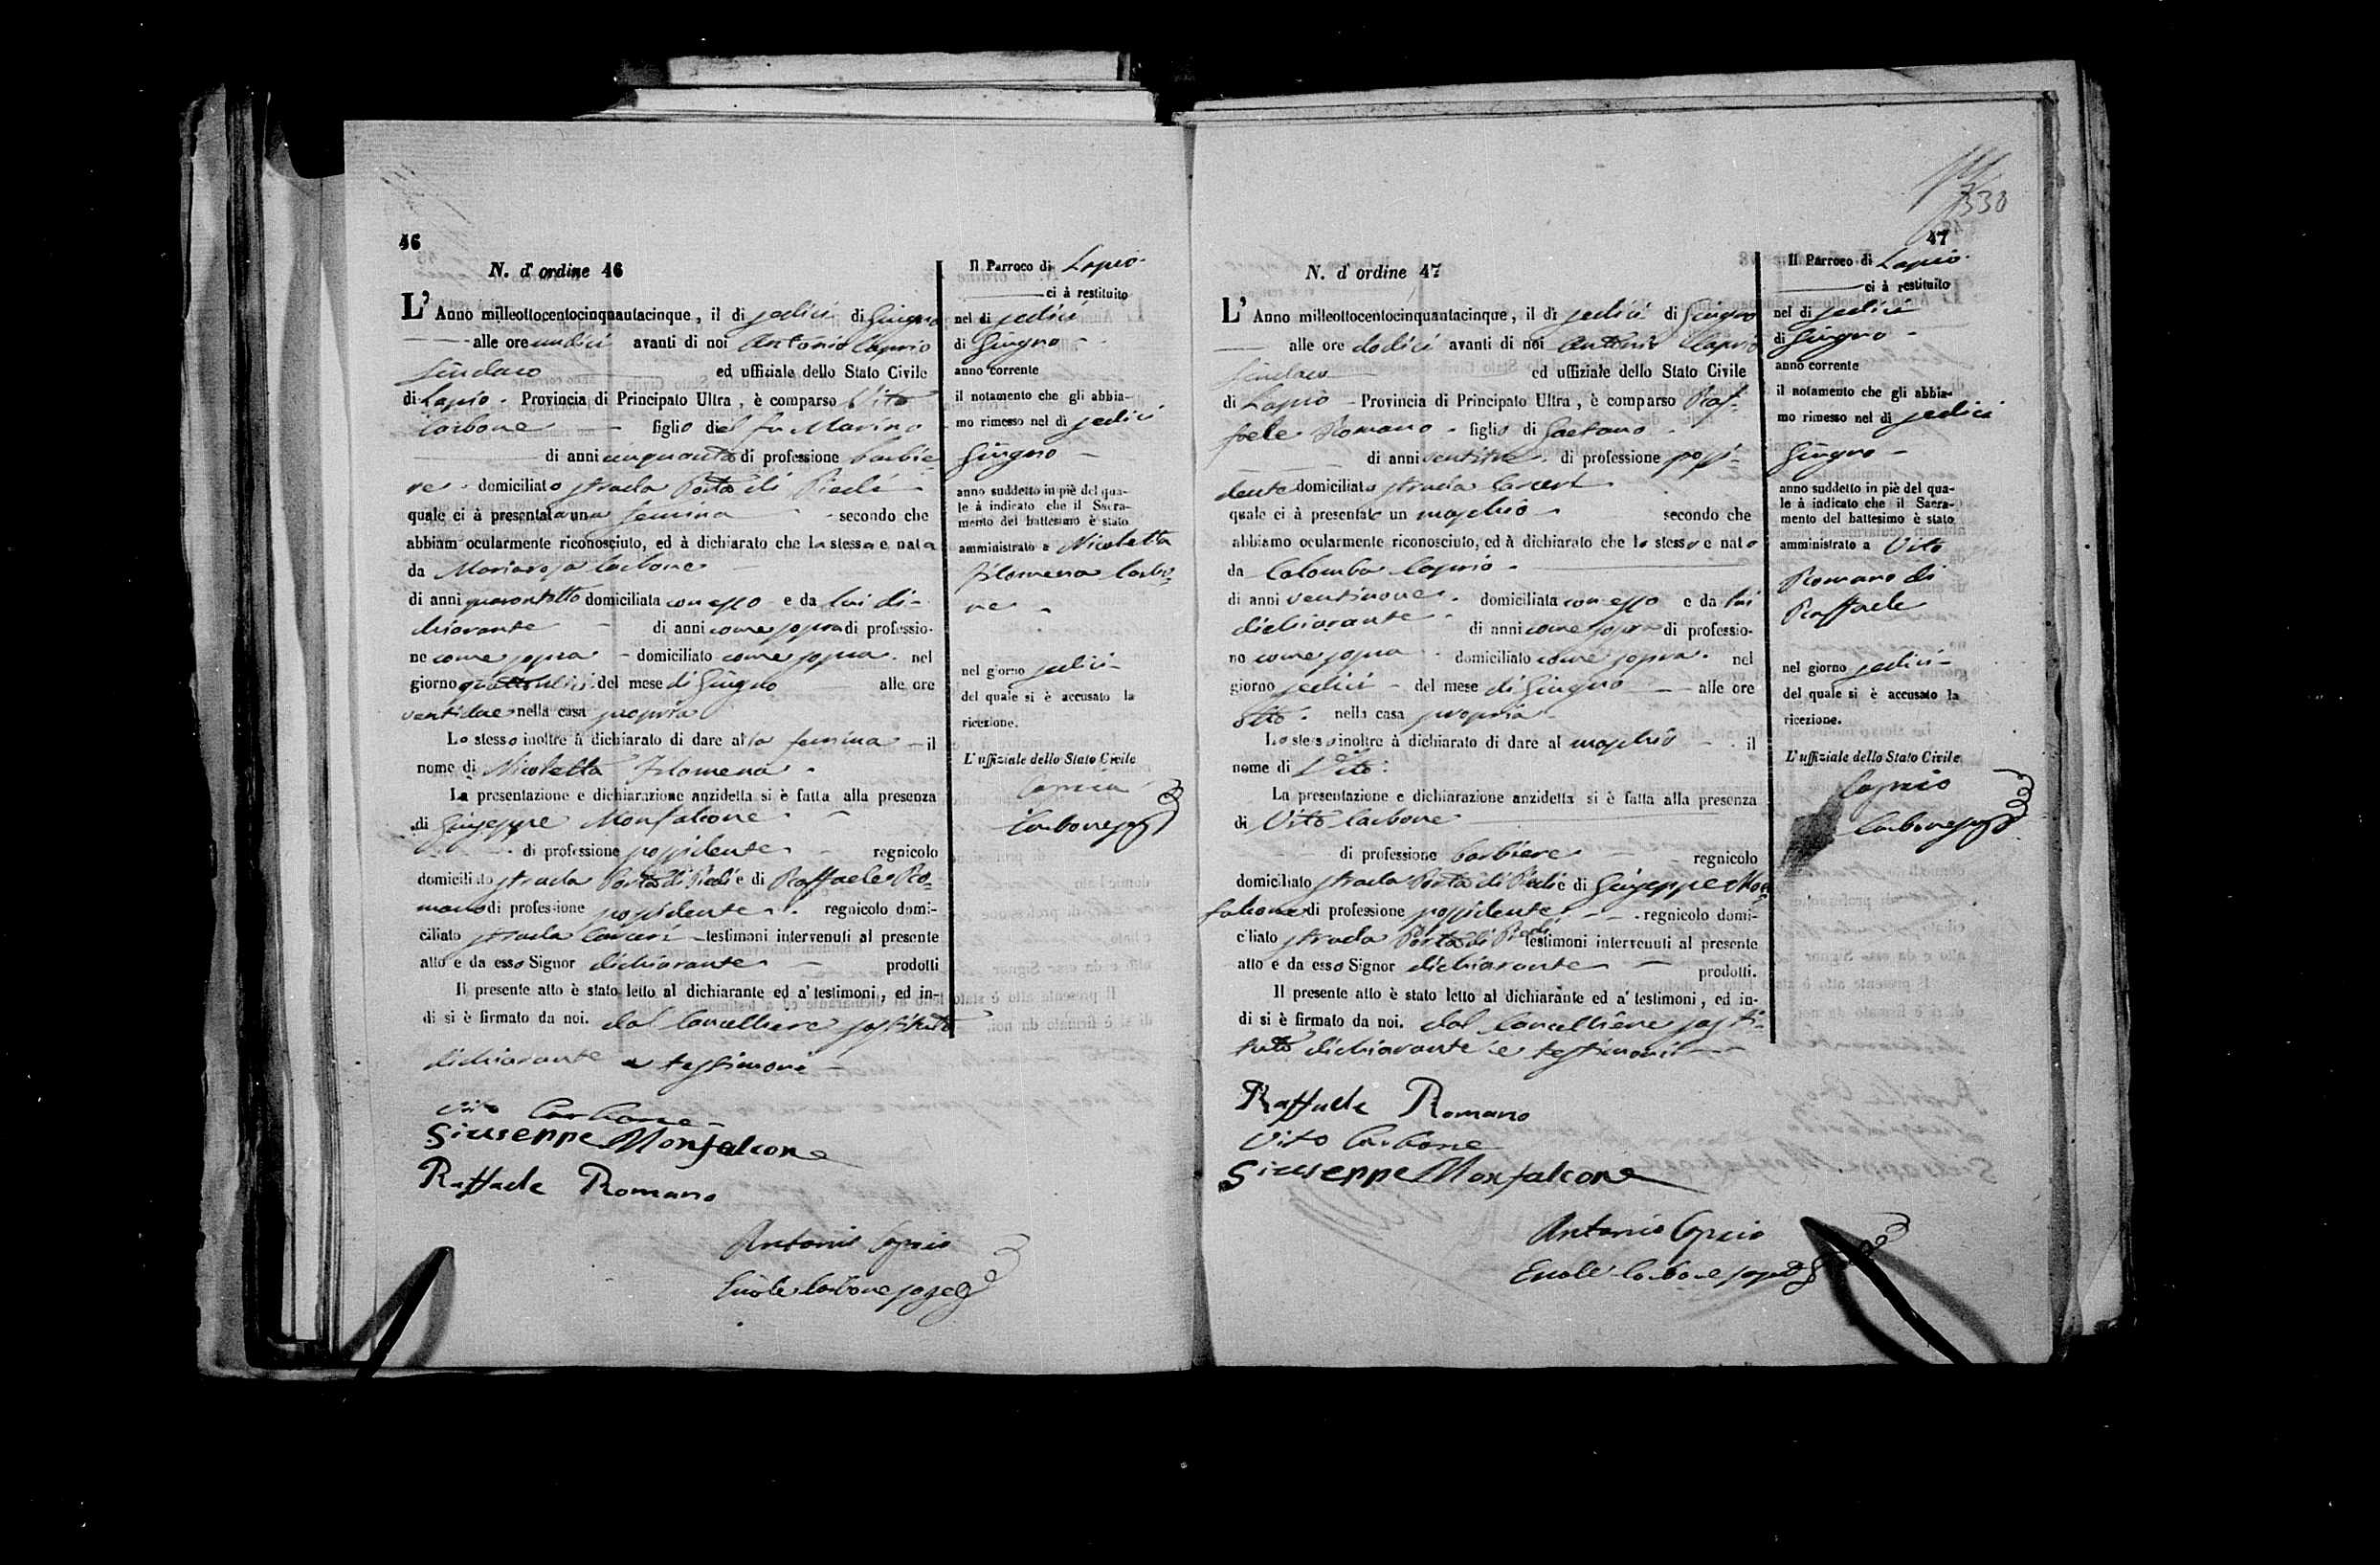 46
N. d' ordine 46
L' Anno milleottocentocinquantacinque, il di sedici di Giugno
alle ore undici avanti di noi Antonio Caprio
Sindaco ed uffiziale dello Stato Civile
di Lapio. Provincia di Principato Ultra, è comparso Vito
Carbone figlio del fu Marino
di anni cinquanta di professione barbie
re domiciliato strada Porta di Piedi
quale ci à presentata una femina secondo che
abbiam ocularmente riconosciuto, ed à dichiarato che la stessa e nata
da Mariarosa Carbone
di anni quarantotto domiciliata con esso e da lui di-
chiarante di anni come sopra di professio-
ne come sopra domiciliato come sopra. nel
giorno quattordici del mese di Giugno alle ore
ventidue nella casa propria
Lo stesso inoltre à dichiarato di dare alla femina il
nome di Nicoletta Filomena
La presentazione e dichiarazione anzidetta si è fatta alla presenza
di Giuseppe Monfalcone
di professione possidente regnicolo
domiciliato strada Porta di Piedi e di Raffaele Ro-
mano di professione possidente regnicolo domi-
ciliato strada Carceri testimoni intervenuti al presente
atto e da esso Signor dichiarante prodotti
Il presente atto è stato letto al dichiarante ed a' testimoni, ed in-
di si è firmato da noi. dal Cancelliere sostituto
dichiarante e testimoni
Vito Carbone
Giuseppe Monfalcone
Raffaele Romano
Antonio Caprio
Ercole Carbone
Il Parroco di Lapio.
ci à restituito
nel di sedici
di Giugno
anno corrente
il notamento che gli abbia-
mo rimesso nel di sedici
Giugno
anno suddetto in piè del qua-
le à indicato che il Sacra-
mento del battesimo è stato
amministrato a Nicoletta
Filomena Carbo-
ne
nel giorno sedici
del quale si è accusato la
ricezione.
L'uffiziale dello Stato Civile
Caprio
Carbone
330
47
N. d' ordine 47
L' Anno milleottocentocinquantacinque, il di sedici di Giugno
alle ore dodici avanti di noi Antonio Caprio
Sindaco ed uffiziale dello Stato Civile
di Lapio Provincia di Principato Ultra, è comparso Raf-
faele Romano figlio di Gaetano
di anni ventitre di professione possi-
dente domiciliato strada Carceri
quale ci à presentato un maschio secondo che
abbiamo ocularmente riconosciuto, ed à dichiarato che lo stesso e nato
da Colomba Caprio
di anni ventinove domiciliata con esso e da lui
dichiarante di anni come sopra di professio-
ne come sopra domiciliato come sopra. nel
giorno sedici del mese di Giugno alle ore
otto. nella casa propria
Lo stesso inoltre à dichiarato di dare al maschio il
nome di Vito
La presentazione e dichiarazione anzidetta si è fatta alla presenza
di Vito Carbone
di professione barbiere regnicolo
domiciliato strada Porta di Piedi e di Giuseppe Mon-
falcone di professione possidente regnicolo domi-
ciliato strada Porta di Piedi testimoni intervenuti al presente
atto e da esso Signor dichiarante prodotti.
Il presente atto è stato letto al dichiarante ed a' testimoni, ed in-
di si è firmato da noi. dal Cancelliere sosti-
tuto dichiarante e testimoni
Raffaele Romano
Vito Carbone
Giuseppe Monfalcone
Antonio Caprio
Ercole Carbone
Il Parroco di Lapio.
ci à restituito
nel di sedici
di Giugno
anno corrente
il notamento che gli abbia-
mo rimesso nel di sedici
Giugno
anno suddetto in piè del qua-
le à indicato che il Sacra-
mento del battesimo è stato
amministrato a Vito
Romano di
Raffaele
nel giorno sedici
del quale si è accusato la
ricezione.
L'uffiziale dello Stato Civile
Caprio
Carbone